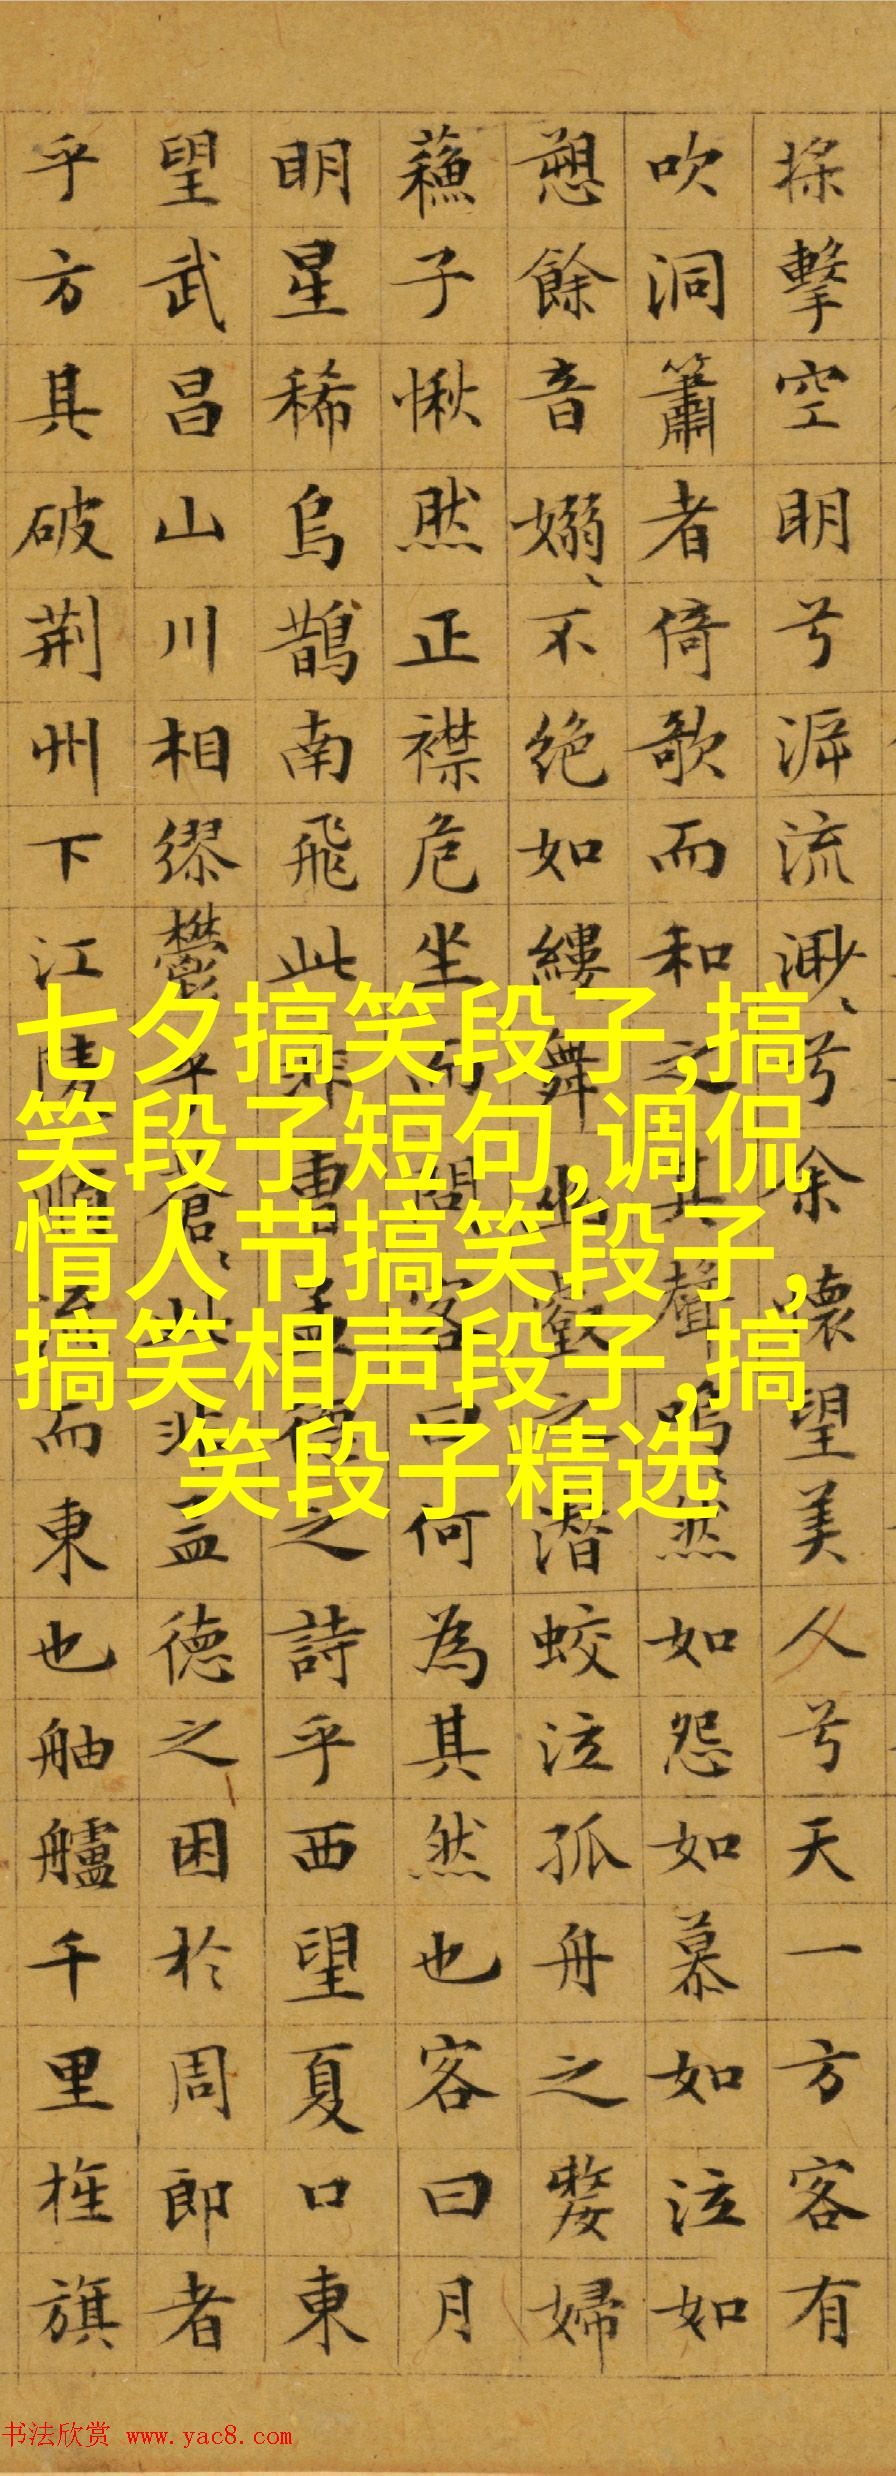 擊空明兮流渺、兮余懷望美人兮天一方客有
吹洞簫者倚歌而和之其聲嗚、然如怨如慕如泣如
愬餘音嫋、不絕如縷舞幽壑之潛蛟泣孤舟之嫠婦
蘓子愀然正襟危坐而問客曰何為其然也客曰月
明星稀烏鵲南飛此非曹孟德之詩乎西望夏口東
望武昌山川相繆鬱乎蒼、此非孟德之困於周郎者
乎方其破荊州下江陵順流而東也舳艫千里旌旗
七夕搞笑段子,搞
笑段子短句,调侃
情人节搞笑段子,
搞笑相声段子,搞
笑段子精选
书法欣赏 www.yac8.com